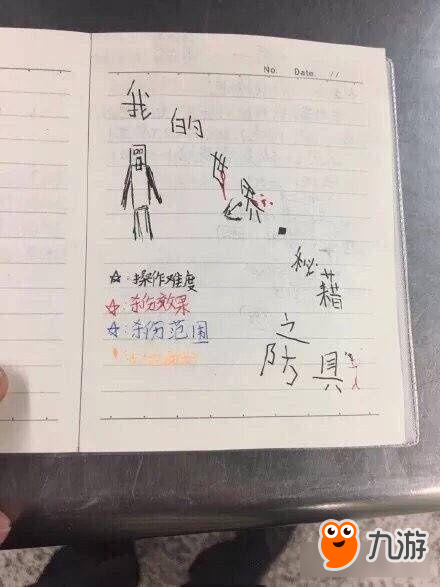 No. Date. / /
我的
秘藉
之
防具
☆:操作难度
☆:杀伤效果
☆:杀伤范围
九游